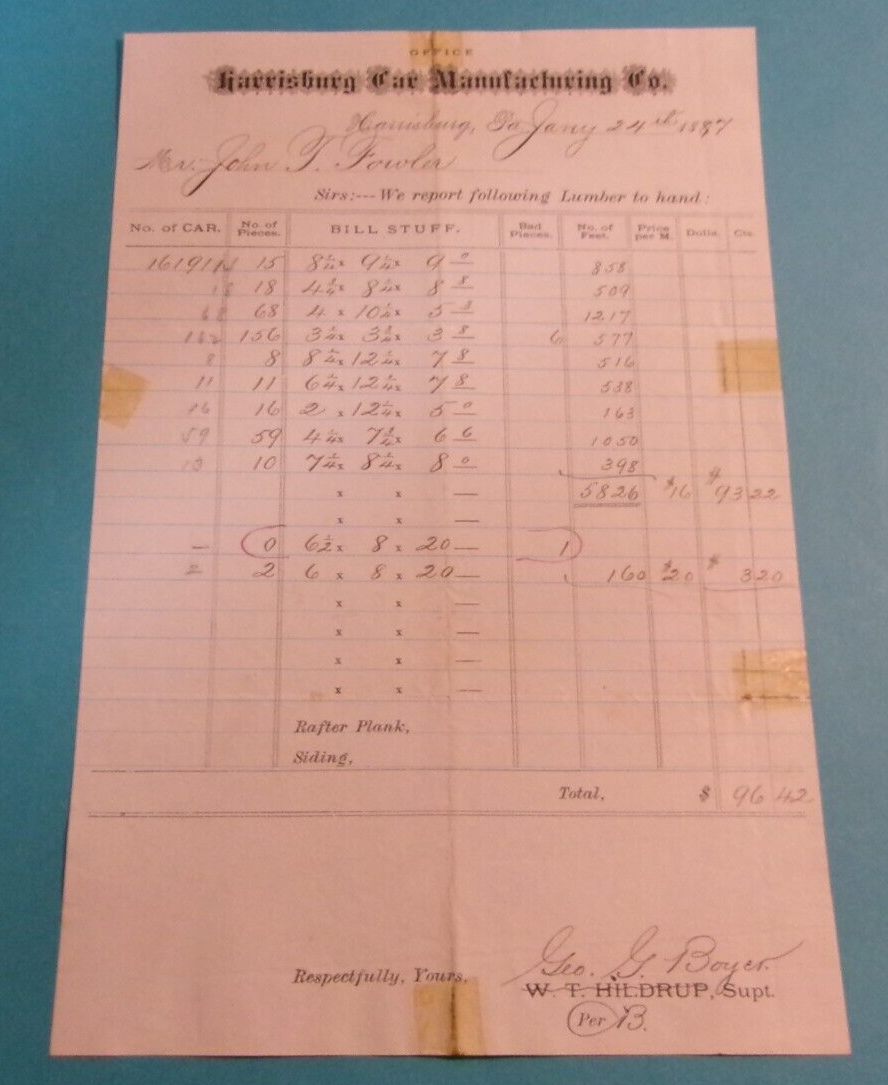 OFFICE
Harrisburg Car Manufacturing Co.
Harrisburg, Pa Jany 24th 1887
Mr. John T. Fowler
Sirs:--- We report following Lumber to hand:
No. of CAR. No. of Pieces. BILL STUFF. Bad Pieces. No. of Feet. Price per M. Dolls. Cts.
15 8 1/4 x 9 1/4 x 9 0 858
18 18 4 1/4 x 8 1/4 x 8 8 509
68 68 4 x 10 1/4 x 5 3 1217
162 156 3 1/4 x 3 3/4 x 3 8 6 577
8 8 8 1/4 x 12 1/4 x 7 8 516
11 11 6 1/4 x 12 1/4 x 7 8 538
16 16 2 x 12 1/4 x 5 0 163
59 59 4 1/4 x 7 3/4 x 6 6 1050
10 10 7 1/4 x 8 1/4 x 8 0 398
x x — 5826 $16 $93 22
x x —
— 0 6 1/2 x 8 x 20 — 1
2 2 6 x 8 x 20 — 160 $20 $ 3 20
x x —
x x —
x x —
x x —
Rafter Plank,
Siding,
Total, $ 96 42
Geo. G. Boyer
Respectfully, Yours,
W. T. HILDRUP, Supt.
Per B.